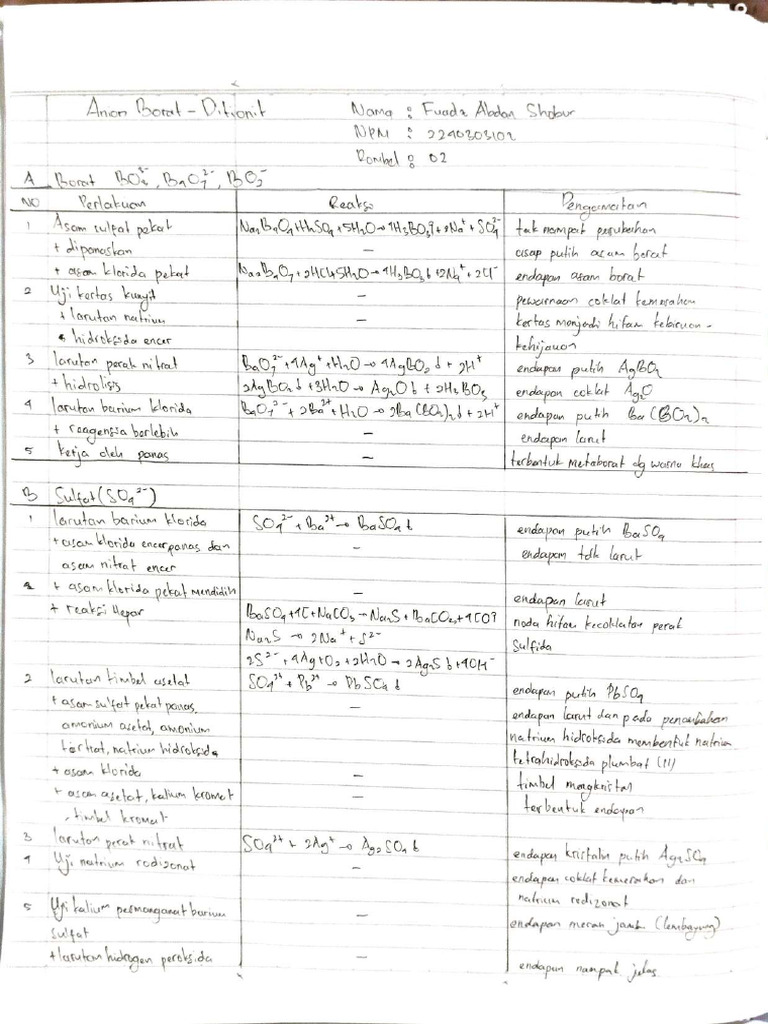 Anion Borat - Ditionit
Nama : Fuadz Abdan Shobur
NPM : 2240303102
Rombel : 02
A Borat BO₃³⁻, B₄O₇²⁻, BO₂⁻
NO Perlakuan Reaksi Pengamatan
1 Asam sulfat pekat Na₂B₄O₇+H₂SO₄+5H₂O→4H₃BO₃↑+2Na⁺+SO₄²⁻ tak nampak perubahan
+ dipanaskan – asap putih asam borat
+ asam klorida pekat Na₂B₄O₇+2HCl+5H₂O→4H₃BO₃↓+2Na⁺+2Cl⁻ endapan asam borat
2 Uji kertas kunyit – pewarnaan coklat kemerahan
+ larutan natrium – kertas menjadi hitam kebiruan-
hidroksida encer kehijauan
3 larutan perak nitrat B₄O₇²⁻+4Ag⁺+H₂O→4AgBO₂↓+2H⁺ endapan putih AgBO₂
+ hidrolisis 2AgBO₂↓+3H₂O→Ag₂O↓+2H₃BO₃ endapan coklat Ag₂O
4 larutan barium klorida B₄O₇²⁻+2Ba²⁺+H₂O→2Ba(BO₂)₂↓+2H⁺ endapan putih Ba(BO₂)₂
+ reagensia berlebih – endapan larut
5 kerja oleh panas – terbentuk metaborat dg warna khas
B Sulfat (SO₄²⁻)
1 larutan barium klorida SO₄²⁻+Ba²⁺→BaSO₄↓ endapan putih BaSO₄
+asam klorida encer panas dan – endapan tdk larut
asam nitrat encer
+ asam klorida pekat mendidih – endapan larut
+ reaksi Hepar BaSO₄+4C+NaCO₃→Na₂S+BaCO₃+4CO↑ noda hitam kecoklatan perak
Na₂S→2Na⁺+S²⁻ sulfida
2S²⁻+4Ag+O₂+2H₂O→2Ag₂S↓+4OH⁻
2 larutan timbel asetat SO₄²⁺+Pb²⁺→PbSO₄↓ endapan putih PbSO₄
+asam sulfat pekat panas, – endapan larut dan pada penambahan
amonium asetat, amonium natrium hidroksida membentuk natrium
tartrat, natrium hidroksida tetrahidroksida plumbat (II)
+ asam klorida – timbel mengkristal
+ asam asetat, kalium kromat – terbentuk endapan
, timbel kromat
3 larutan perak nitrat SO₄²⁺+2Ag⁺→Ag₂SO₄↓ endapan kristalin putih Ag₂SO₄
4 Uji natrium rodizonat – endapan coklat kemerahan dan
natrium rodizonat
5 Uji kalium permanganat barium – endapan merah jambu (lembayung)
sulfat
+larutan hidrogen peroksida – endapan nampak jelas